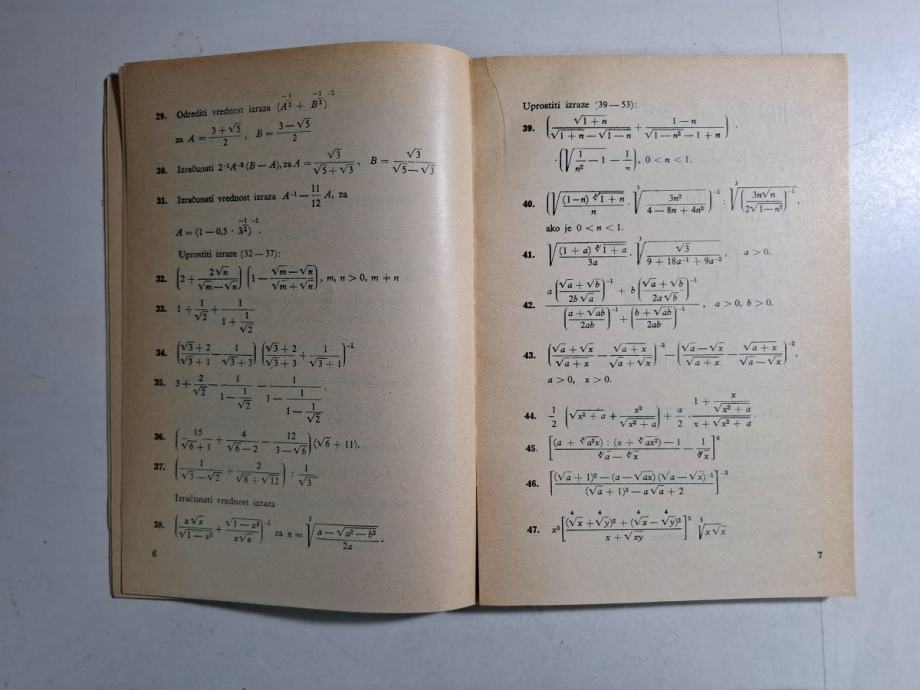 29. Odrediti vrednost izraza (A^{-1/2} + B^{-1/2})^{-2}
za A = (3+√5)/2, B = (3−√5)/2
30. Izračunati 2^{-1}A^{-2}(B − A), za A = √3/(√5+√3), B = √3/(√5−√3)
31. Izračunati vrednost izraza A^{-1} − (11/12) A, za
A = (1 − 0,5 · 3^{-1/2})^{-1}.
Uprostiti izraze (32 — 37):
32. (2 + 2√n/(√m−√n)) (1 − (√m−√n)/(√m+√n)), m, n > 0, m ≠ n
33. 1 + 1/√2 + 1/(1 + 1/√2)
34. ((√3+2)/(√3+1) − 1/(√3+3)) ((√3+2)/(√3+3) + 1/(√3+1))^{-1}
35. 3 + 2/√2 − 1/(1 − 1/√2) − 1/(1 − 1/(1 − 1/√2)).
36. (15/(√6+1) + 4/(√6−2) − 12/(3−√6)) (√6 + 11).
37. (1/(√3−√2) + 2/(√8+√12)) : 1/√3
Izračunati vrednost izraza
38. (x√x/√(1−x³) + √(1−x³)/(x√x))^{-1} za x = ∛((a − √(a²−b²))/(2a)).
6
Uprostiti izraze (39 — 53):
39. (√(1+n)/(√(1+n) − √(1−n)) + (1−n)/(√(1−n²) − 1 + n)) ·
· (√(1/n² − 1) − 1/n), 0 < n < 1.
40.
ako je 0 < n < 1.
41. a > 0.
42. (a((√a+√b)/(2b√a))^{-1} + b((√a+√b)/(2a√b))^{-1})/(((a+√ab)/(2ab))^{-1} + ((b+√ab)/(2ab))^{-1}), a > 0, b > 0.
43. ((√a+√x)/√(a+x) − √(a+x)/(√a+√x))^{-2} − ((√a−√x)/√(a+x) − √(a+x)/(√a−√x))^{-2},
a > 0, x > 0.
44. 1/2 (√(x²+a) + x²/√(x²+a)) + a/2 · (1 + x/√(x²+a))/(x + √(x²+a)).
45.
46. [((√a+1)² − (a − √ax)(√a − √x)^{-1})/((√a+1)³ − a√a + 2)]^{-3}
47. x³[((∜x+∜y)² + (∜x−∜y)²)/(x+√xy)]⁵ ∛(x√x)
7